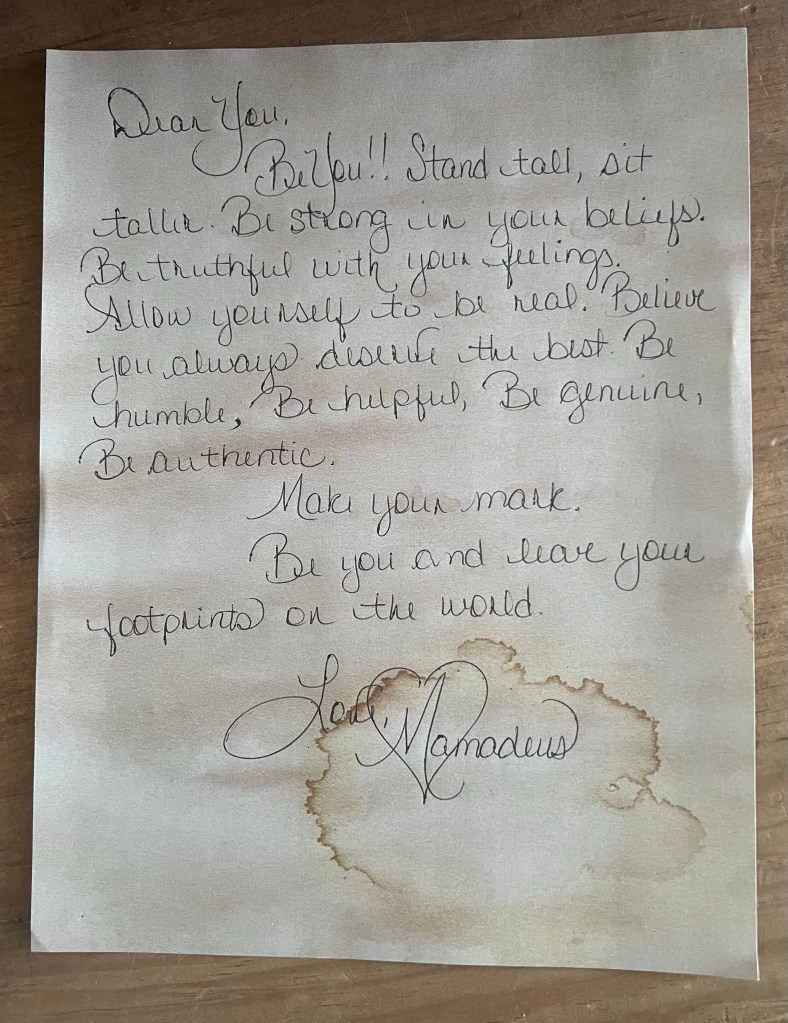 Dear You,
Be You!! Stand tall, sit
taller. Be strong in your beliefs.
Be truthful with your feelings.
Allow yourself to be real. Believe
you always deserve the best. Be
humble, Be helpful, Be genuine,
Be authentic.
Make your mark.
Be you and leave your
footprints on the world.
Love, Mamadeus